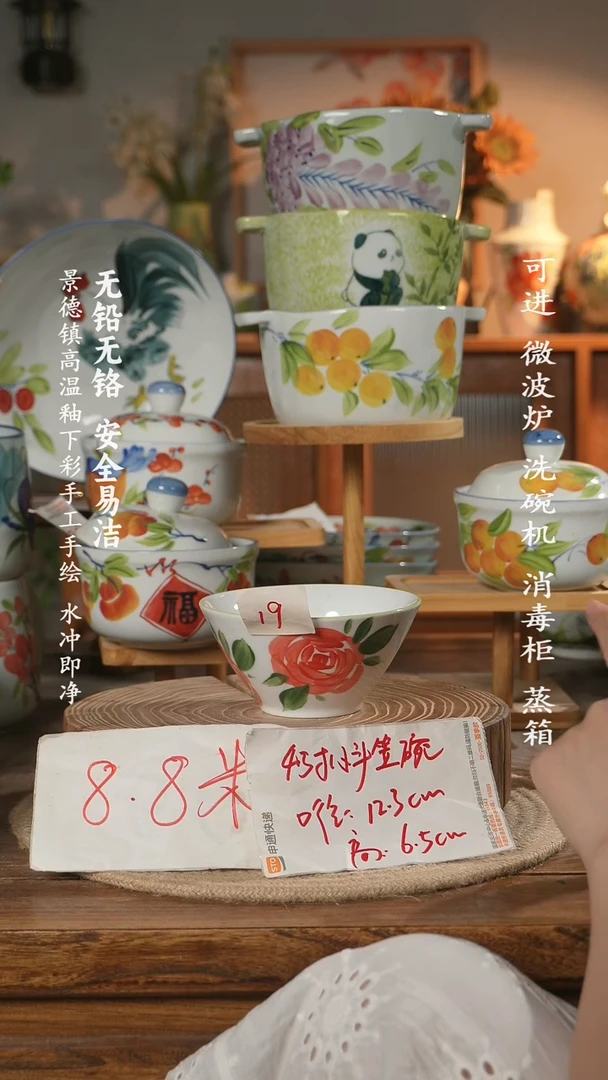 无铅无铬 安全易洁
景德镇高温釉下彩手工手绘 水冲即净
可进 微波炉 洗碗机 消毒柜 蒸箱
19
福
8.8米
4.5寸斗笠碗
口径:12.3cm
高:6.5cm
STO
申通快递